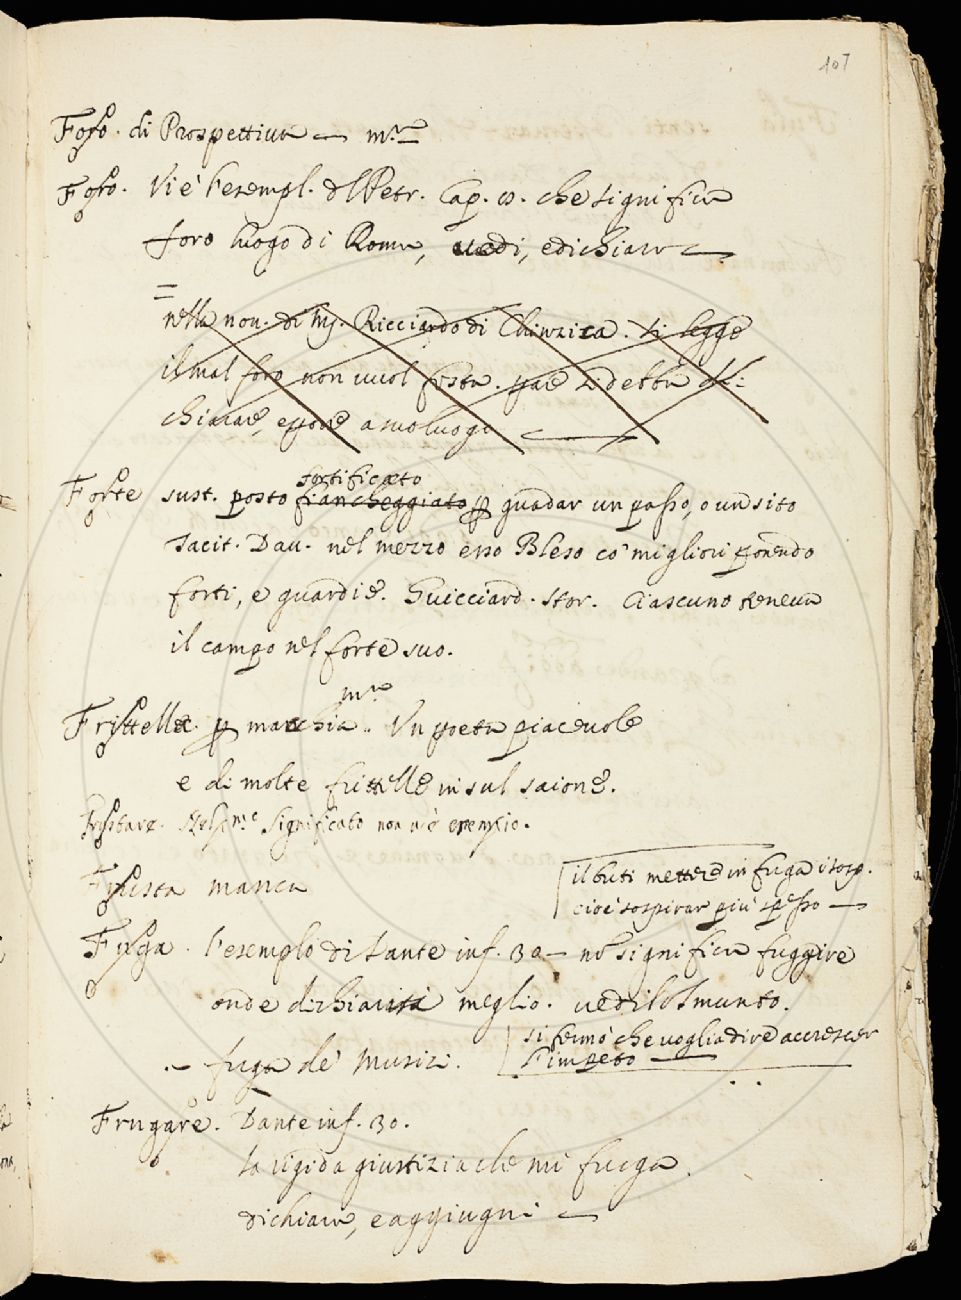 107
Foro. di Prospettiva — mᵃ
Foro. Vi è l'esempl. del Petr. Cap. 10. che significa
foro luogo di Roma, vedi, e dichiara —
=
nella nov. di Mʳ. Ricciardo di Chinzica. si legge
il mal foro non vuol festa. pare si debba di:
chiarare, e porre a suo luogo —
Forte sust. posto fiancheggiato fortificato p guadar un passo, o un sito
Tacit. Dav. nel mezzo esso Bleso co' migliori ponendo
forti, e guardie. Guicciard. stor. Ciascuno teneva
il campo nel forte suo.
Frittella. p macchia. mᵃ Un poeta piacevole
e di molte frittelle in sul saione.
significato non v'è esempio.
Frusta manca
il buti mettere in fuga i sosp.
cioè sospirar più spesso —
Fuga. l'esemplo di Dante inf. 30 — nō significa fuggire
onde dichiarisi meglio. vedilo smunto.
si fermò che voglia dire accrescer
l'impeto —
— fuga de' Musici.
Frugare. Dante inf. 30.
la rigida giustizia che mi fruga
dichiara, e aggiugni —